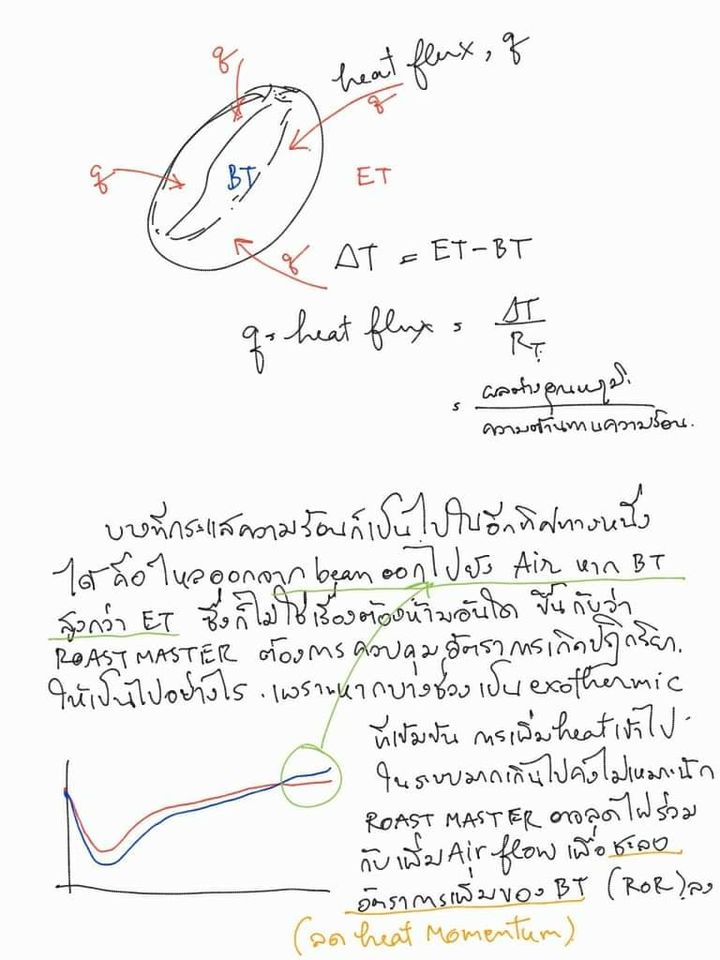 q
heat flux, q
q
q
BT
ET
q
ΔT = ET-BT
q = heat flux = ΔT / R_T
= ผลต่างอุณหภูมิ / ความต้านทานความร้อน.
บางทีกระแสความร้อนก็เป็นไปในอีกทิศทางหนึ่ง
ได้ คือ ไหลออกจาก bean ออกไปยัง Air หาก BT
สูงกว่า ET ซึ่งก็ไม่ใช่เรื่องต้องห้ามอันใด ขึ้นกับว่า
ROAST MASTER ต้องการ ควบคุม อัตราการเกิดปฏิกริยา.
ให้เป็นไปอย่างไร . เพราะหากบางช่วงเป็น exothermic
ที่เข้มข้น การเพิ่ม heat เข้าไป
ในระบบมากเกินไปคงไม่เหมาะนัก
ROAST MASTER อาจลดไฟร่วม
กับเพิ่ม Air flow เพื่อ ชะลอ
อัตราการเพิ่มของ BT (ROR) ลง
(ลด heat MOMENTUM)